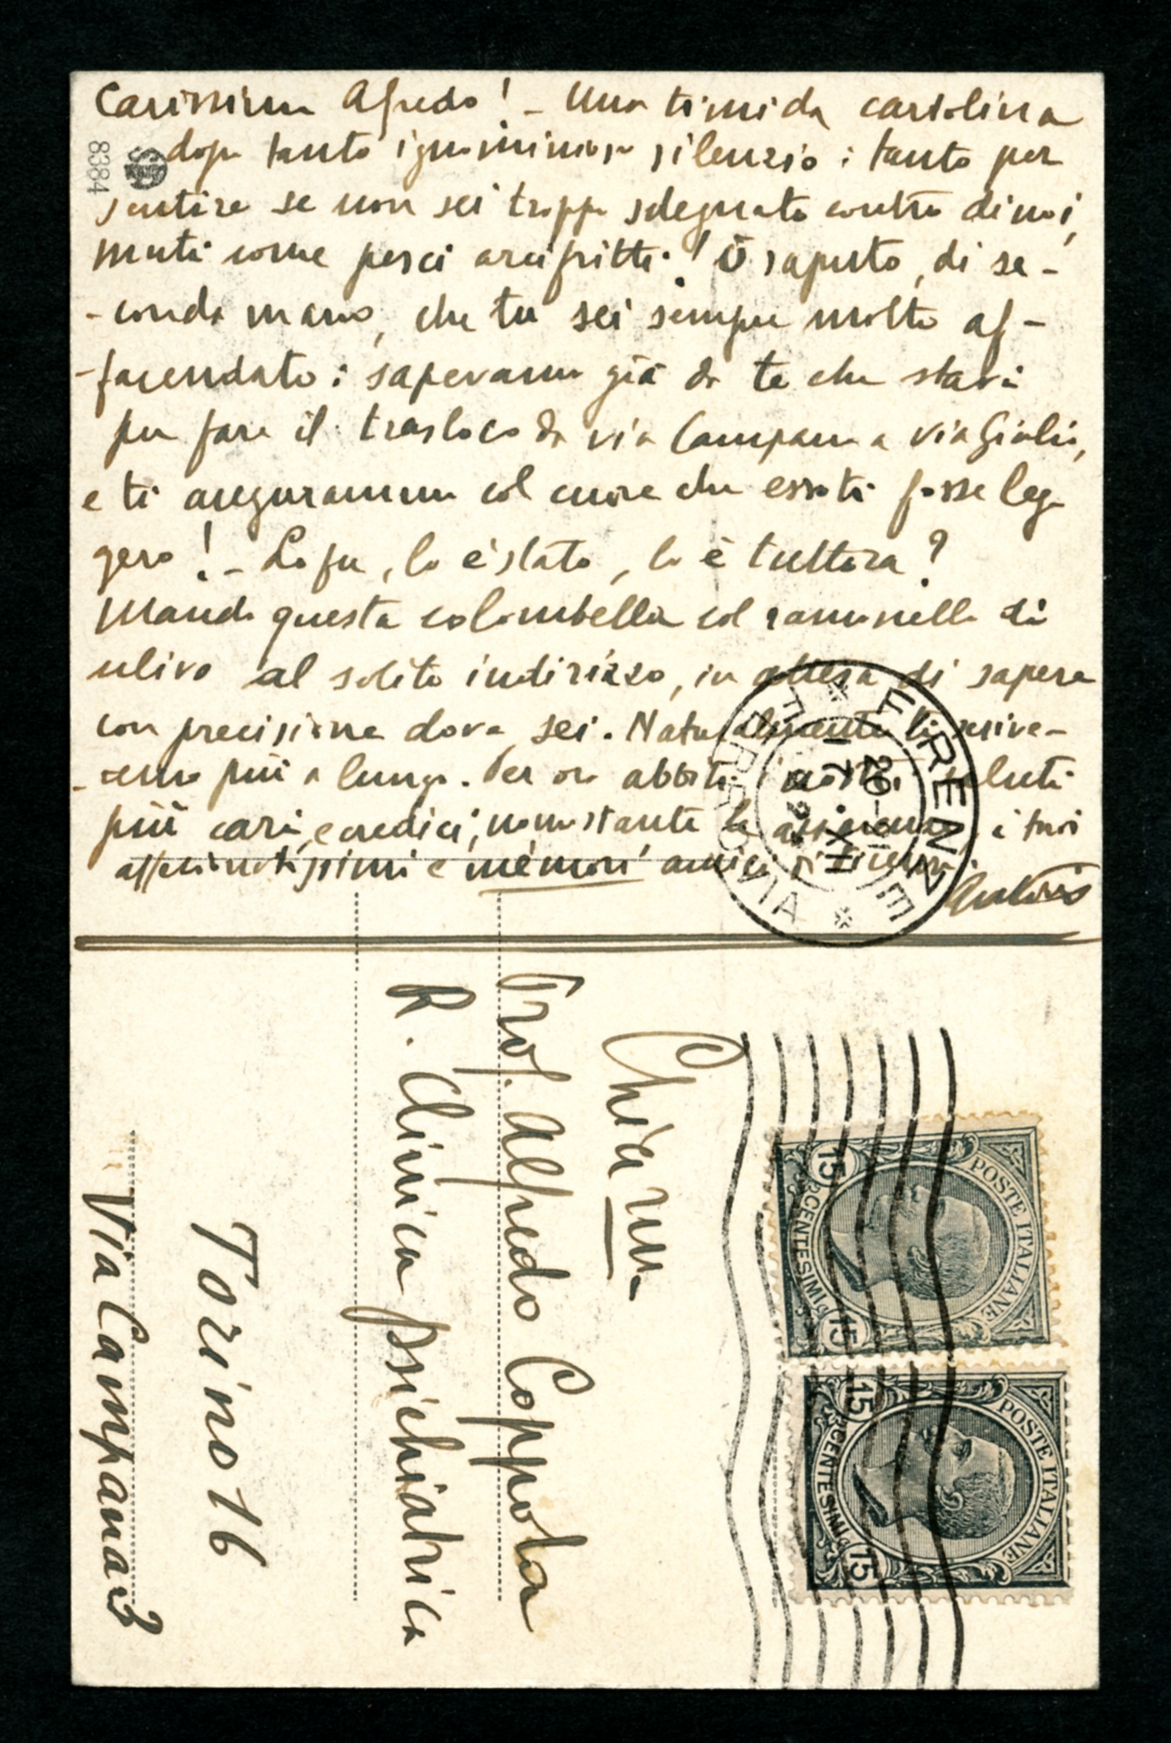 Carissimo Alfredo! - Una timida cartolina
dopo tanto ignominioso silenzio: tanto per
sentire se non sei troppo sdegnato contro di noi,
muti come pesci arcifritti! Ò saputo, di se-
-conda mano, che tu sei sempre molto af-
-facendato: sapevamo già da te che stavi
per fare il trasloco da via Campana a via Giulio,
e ti auguravamo col cuore che esso ti fosse leg
gero! - Lo fu, lo è stato, lo è tuttora?
Mando questa colombella col ramoscello di
ulivo al solito indirizzo, in attesa di sapere
con precisione dove sei. Naturalmente ti scrive-
-remo più a lungo. Per ora abbiti i nostri saluti
più cari, e credici, nonostante le apparenze, i tuoi
affezionatissimi e memori amici di
8384
FIRENZE
FERROVIA
20-21
17
XII
Chiar.mo
Prof. Alfredo Coppola
R. Clinica Psichiatrica
Torino 16
Via Campana 3
POSTE ITALIANE
15 CENTESIMI 15
POSTE ITALIANE
15 CENTESIMI 15